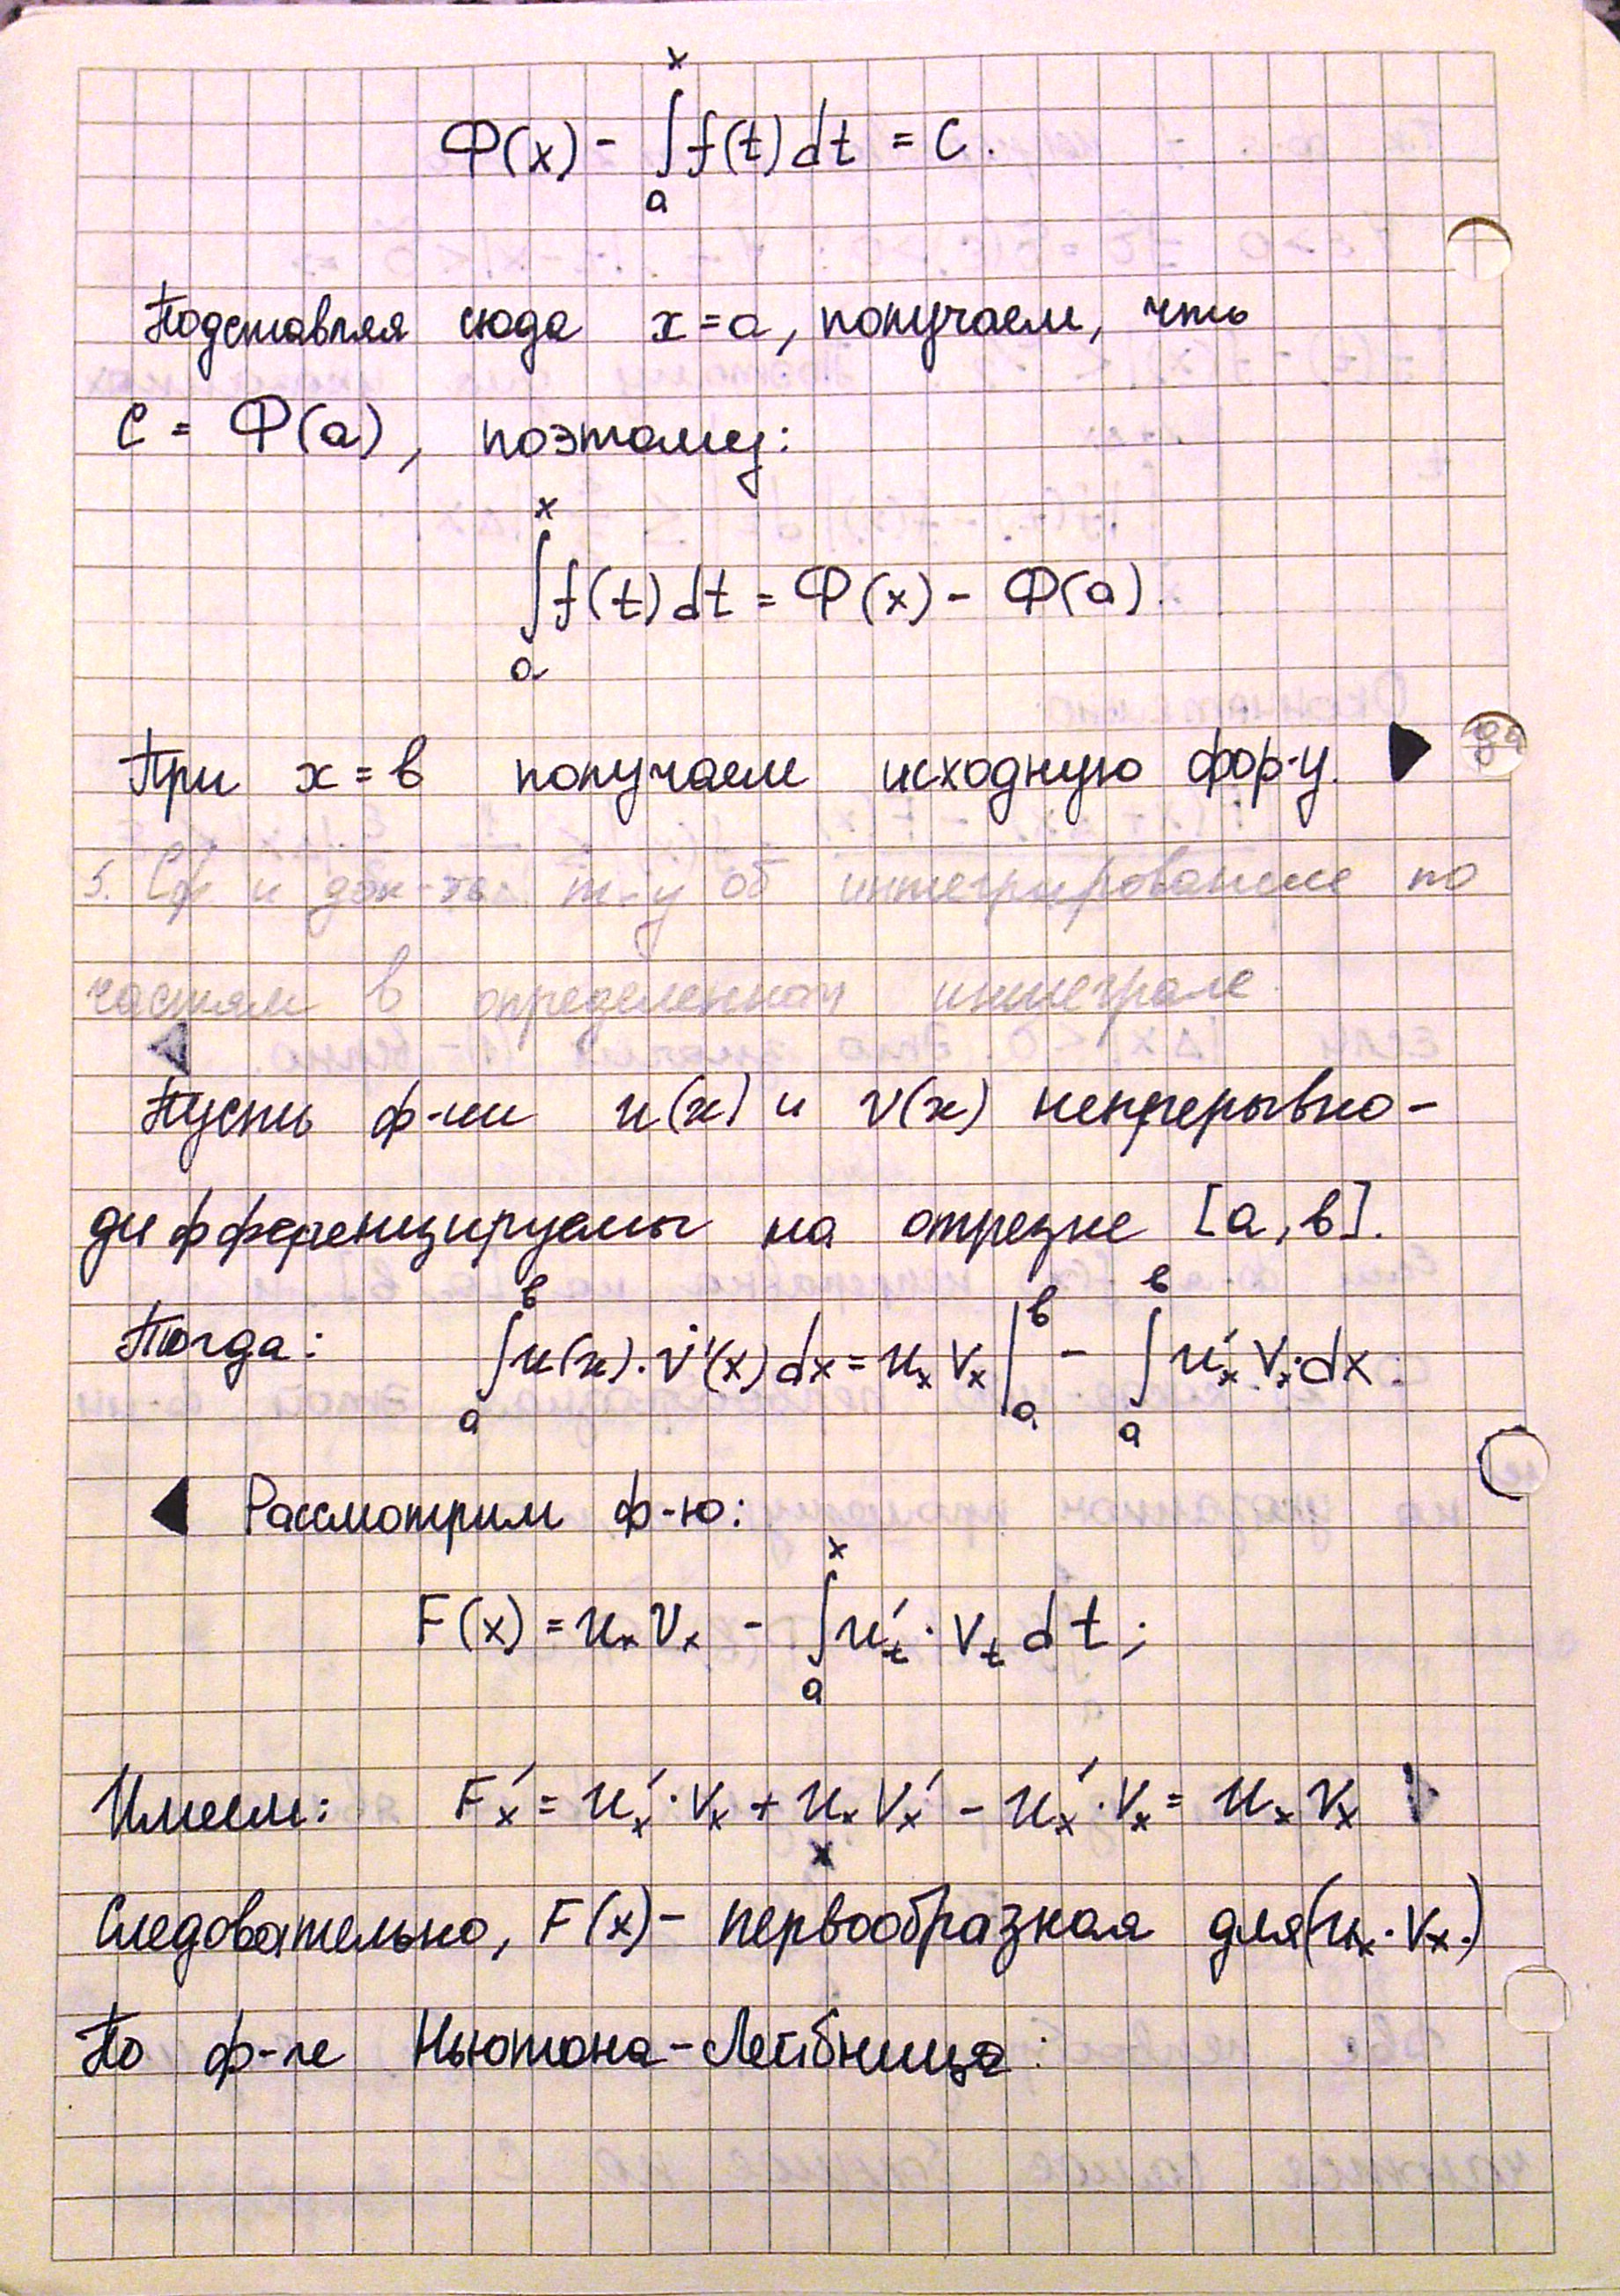 Ф(x) - ∫ₐˣ f(t) dt = C.
Подставляя сюда x = a, получаем, что
C = Ф(a), поэтому:
∫ₐˣ f(t) dt = Ф(x) - Ф(a).
При x = в получаем исходную фор-у. ▶
5. Сф. и док-ть т-у об интегрирование по
частям в определенном интеграле
◀
Пусть ф-ии u(x) и v(x) непрерывно-
дифференцируемы на отрезке [a, в].
Тогда: ∫ₐᵇ u(x)·v'(x) dx = uₓ vₓ |ₐᵇ - ∫ₐᵇ u'ₓ vₓ·dx.
◀ Рассмотрим ф-ю:
F(x) = uₓ vₓ - ∫ₐˣ u'ₜ · vₜ dt;
Имеем: F'ₓ = u'ₓ·vₓ + uₓ v'ₓ - u'ₓ·vₓ = uₓ vₓ
Следовательно, F(x) - первообразная для (uₓ·vₓ.)
По ф-ле Ньютона-Лейбница: